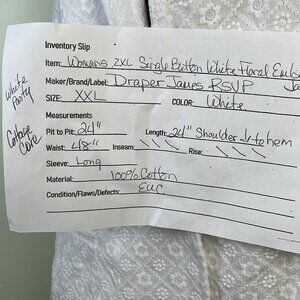 Inventory Slip
Item: Womans 2XL Single Button White Floral
Maker/Brand/Label: Draper James RSVP
SIZE: XXL COLOR: White
Measurements
Pit to Pit: 24" Length: 24" Shoulder to hem
Waist: 48" Inseam: Rise:
Sleeve: Long
Material: 100% Cotton
Condition/Flaws/Defects: EUC
White
Party
Cottage
Core